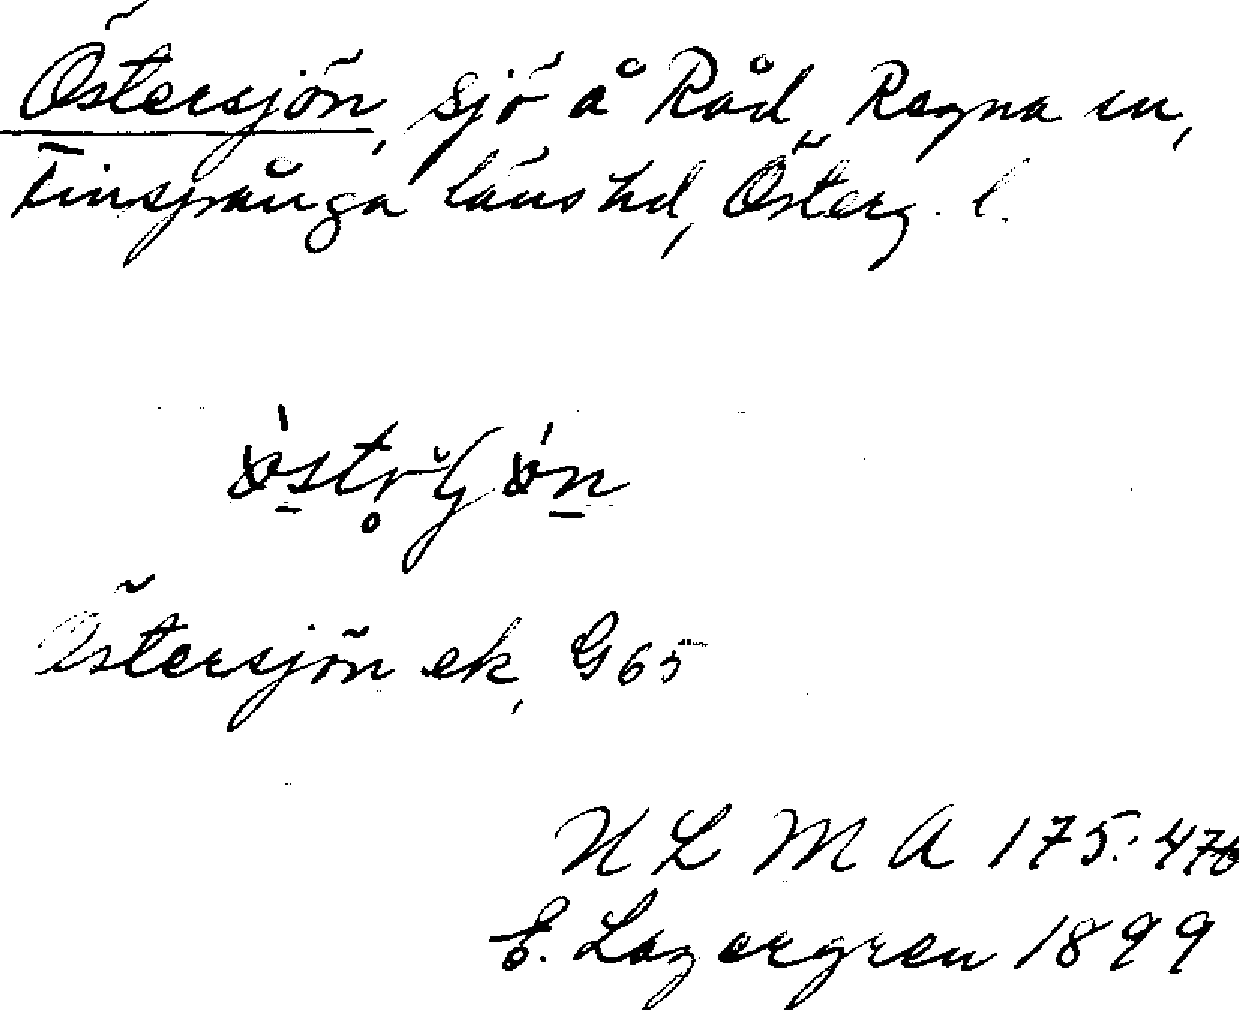 Östersjön, sjö å Råd, Regna sn,
Finspånga läns hd, Österg. l.
Östersjön ek, G65
N L M A 175: 476
E. Lagergren 1899